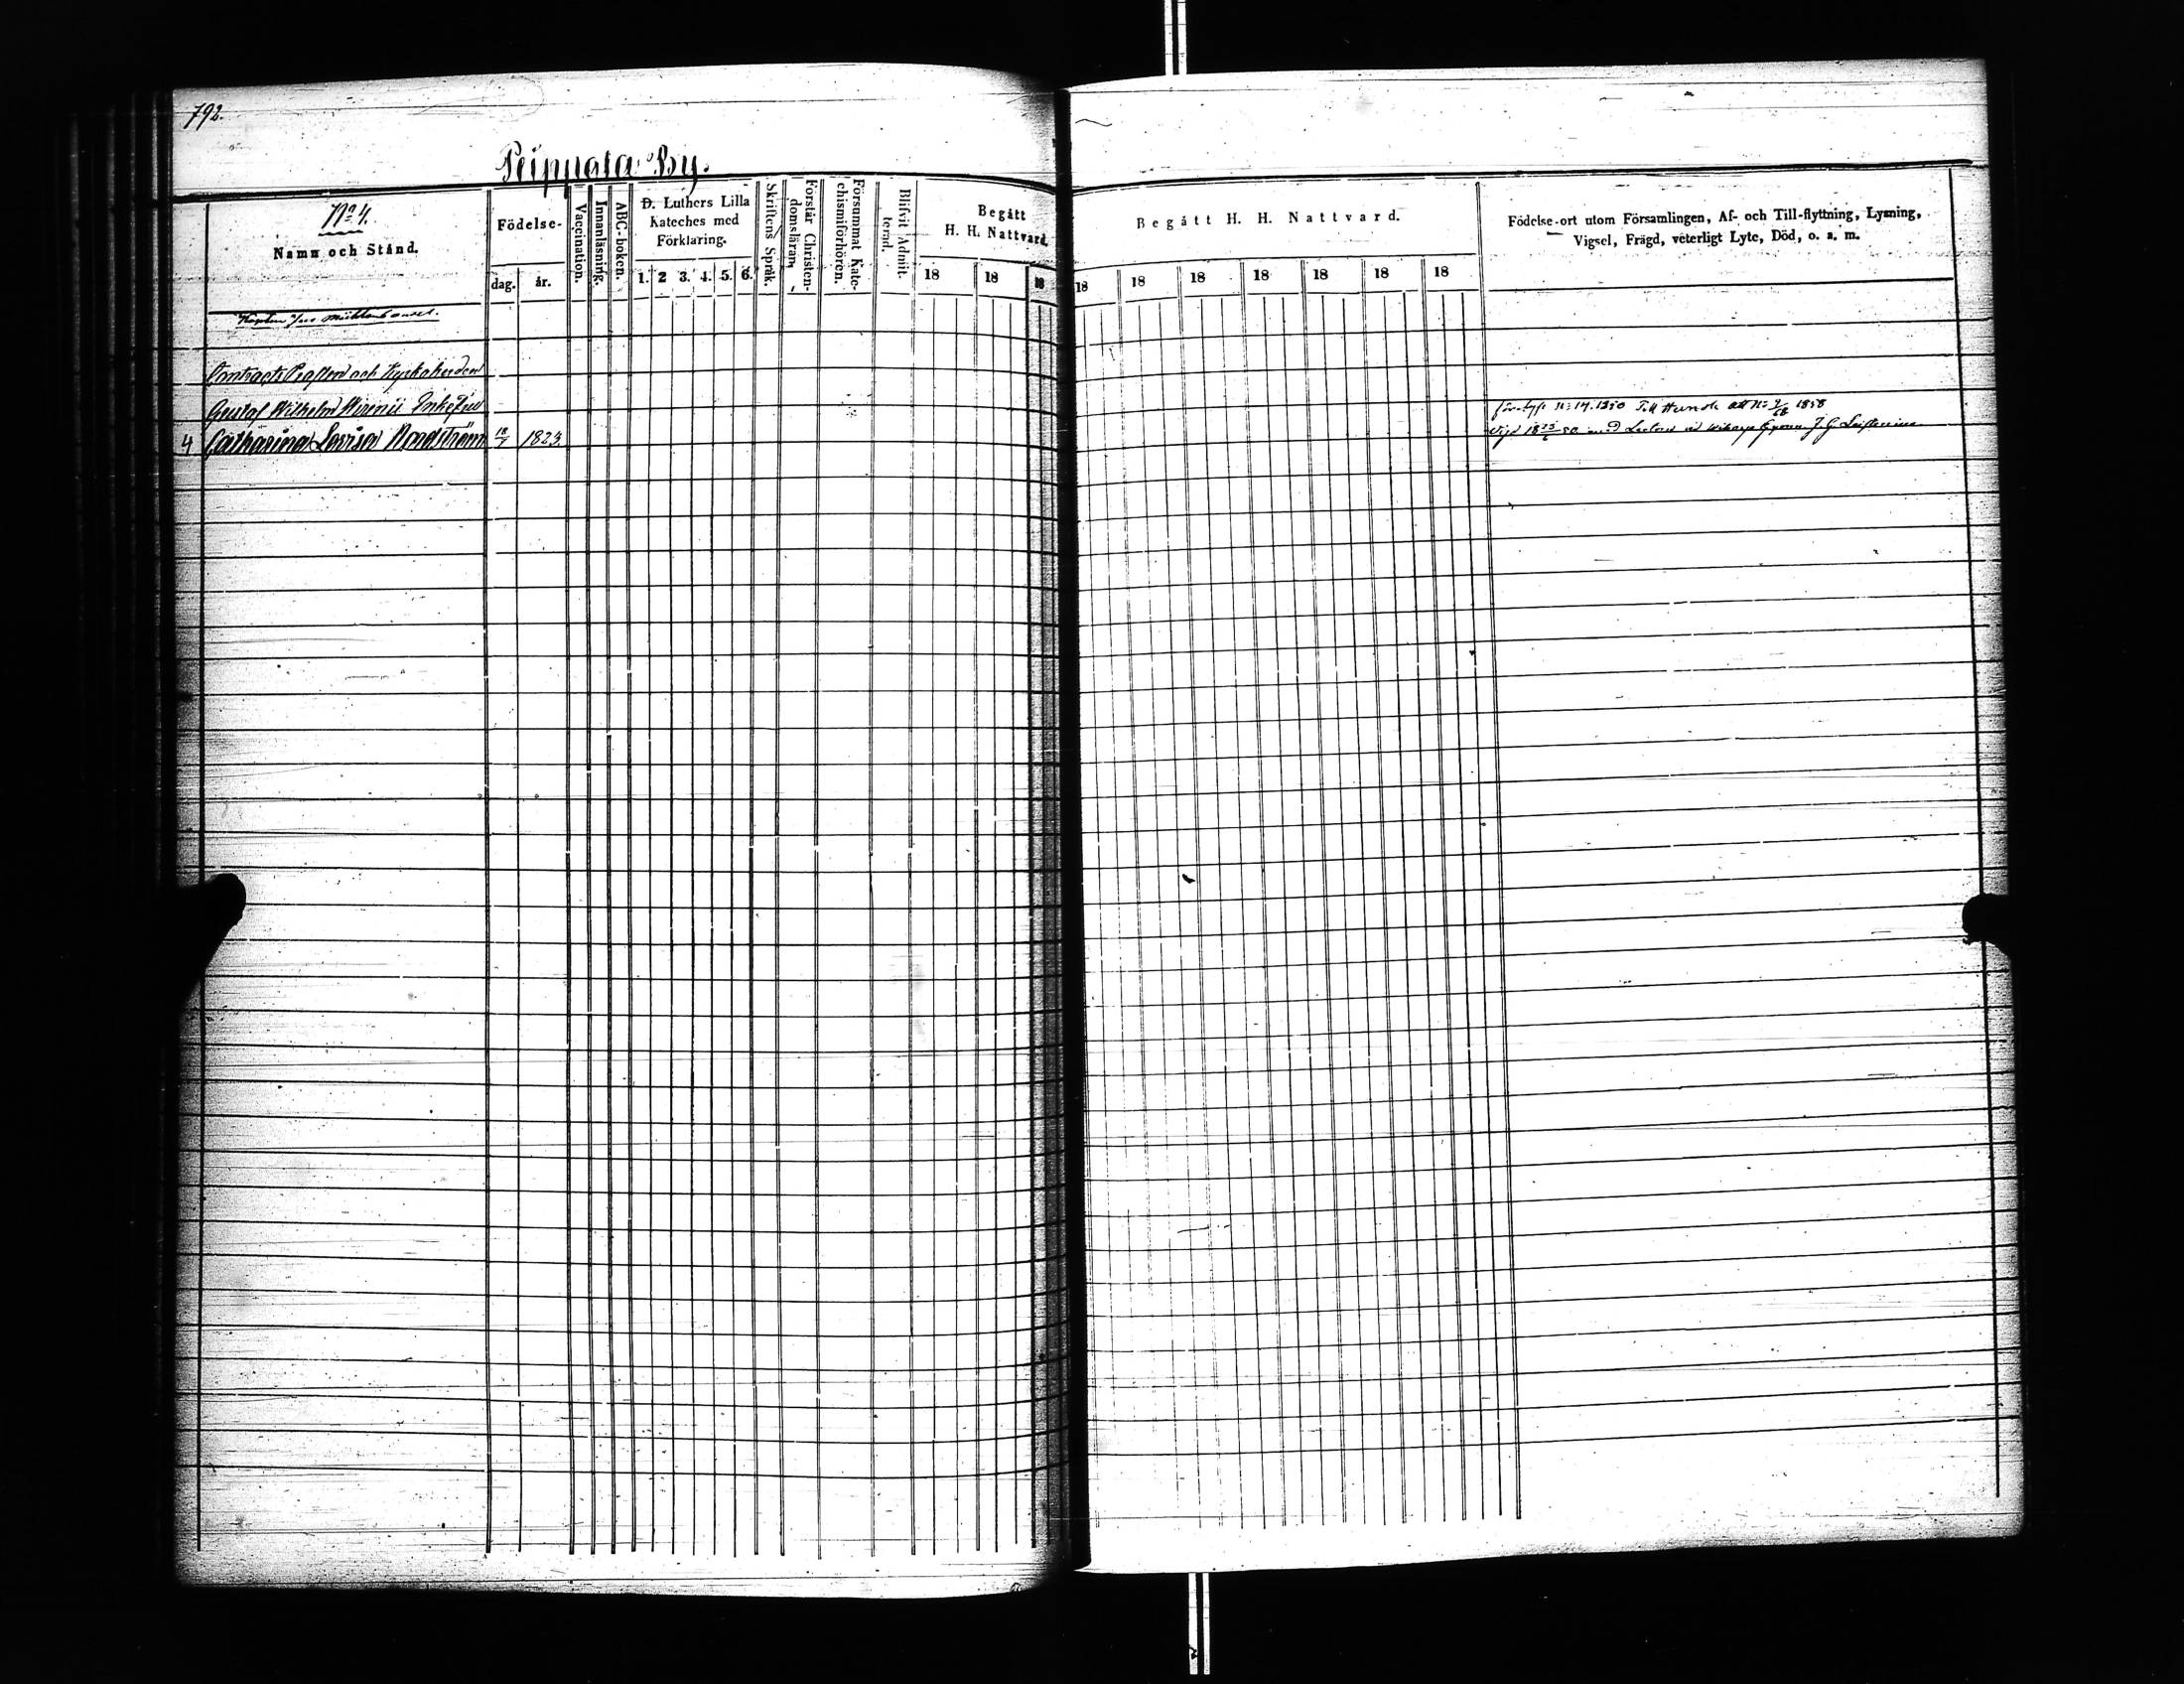 792.
Peippola By.
No 4.
Namn och Stånd.
Födelse-
dag. år.
Vaccination.
Innanläsning.
ABC-boken.
D. Luthers Lilla
Kateches med
Förklaring.
1. 2 3. 4. 5. 6.
Skriftens Språk.
Förstår Christen-
domsläran.
Försummat Kate-
chismiförhören.
Blifvit Admit-
terad.
Begått
H. H. Nattvard.
18 18 18
Begått H. H. Nattvard.
18 18 18 18 18 18 18
Födelse-ort utom Församlingen, Af- och Till-flyttning, Lysning,
Vigsel, Frägd, veterligt Lyte, Död, o. s. m.
Contracts Prosten och Kyrkoherden
Gustaf Wilhelm Wirenii Enkefru
4 Catharina Lovisa Nordström 18/ 1823
1850 Till 1858
Vigd 18 50 med Lectorn J G